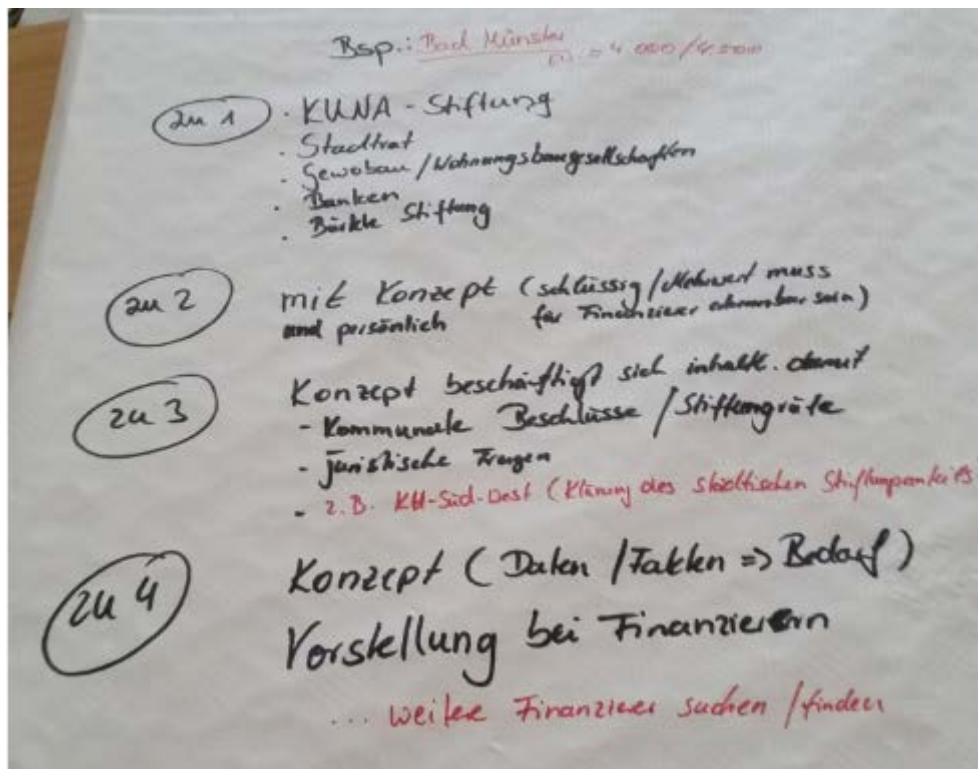 Bsp.: Bad Münster
= 4.000/4.500
zu 1 · KUNA - Stiftung
· Stadtrat
· Gewobau / Wohnungsbaugesellschaften
· Banken
· Bürkle Stiftung
zu 2 mit Konzept (schlüssig / Mehrwert muss
und persönlich für Finanzierer erkennbar sein)
zu 3 Konzept beschäftigt sich inhaltl. damit
- Kommunale Beschlüsse / Stiftungsräte
- juristische Fragen
- z.B. KH-Süd-Ost (Klärung des städtischen Stiftungsanteils)
zu 4 Konzept (Daten / Fakten => Bedarf)
Vorstellung bei Finanzierern
... weitere Finanzierer suchen / finden